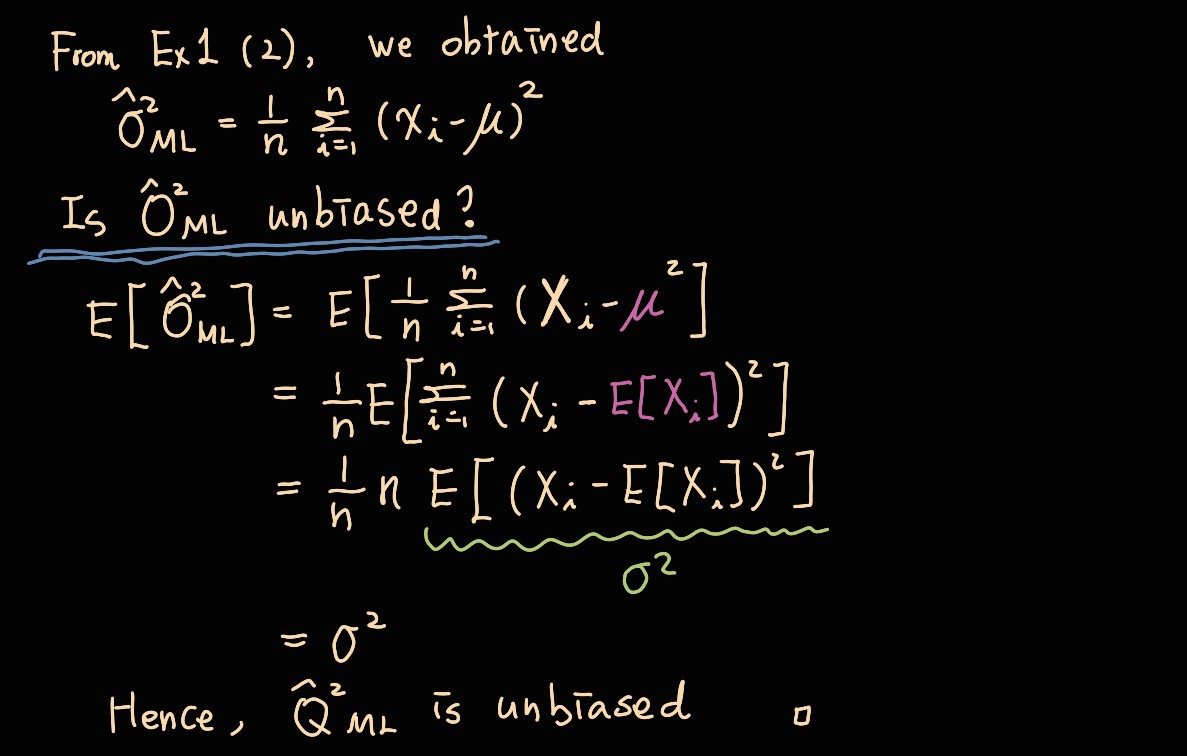 From Ex1 (2), we obtained
σ̂²ML = 1/n Σⁿᵢ₌₁ (xᵢ-μ)²
Is σ̂²ML unbiased?
E[σ̂²ML] = E[1/n Σⁿᵢ₌₁ (Xᵢ-μ²]
= 1/n E[Σⁿᵢ₌₁ (Xᵢ - E[Xᵢ])²]
= 1/n n E[(Xᵢ - E[Xᵢ])²]
σ²
= σ²
Hence, σ̂²ML is unbiased □